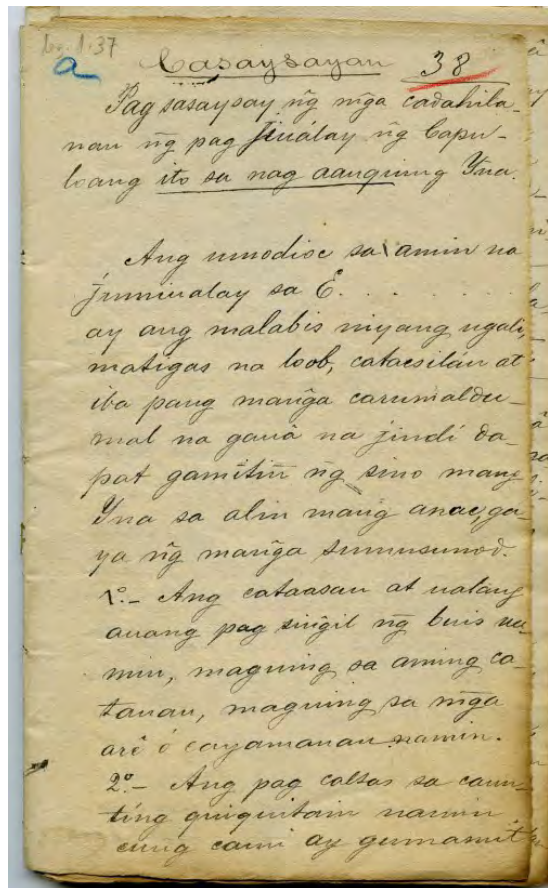 a
Casaysayan 38
Pag sasaysay ñg mga cadahila-
nan ñg pag jiualay ñg Capu-
loang ito sa nag aanquing Yna.
Ang umodioc sa amin na
jumiualay sa E. . . . . .
ay ang malabis niyang ugali,
matigas na loob, catacsilán at
iba pang mañga carumaldu-
mal na gauâ na jindí da-
pat gamitin ñg sino mang
Yna sa alin mang anac, ga-
ya ñg mañga sumusunod.
1º.- Ang cataasan at ualang
auang pag siñgil ñg buis na-
min, maguing sa aming ca-
tauan, maguing sa mga
arê ó cayamanan namin.
2º.- Ang pag caltas sa caun-
ting quiquitain namin
cung cami ay gumamit